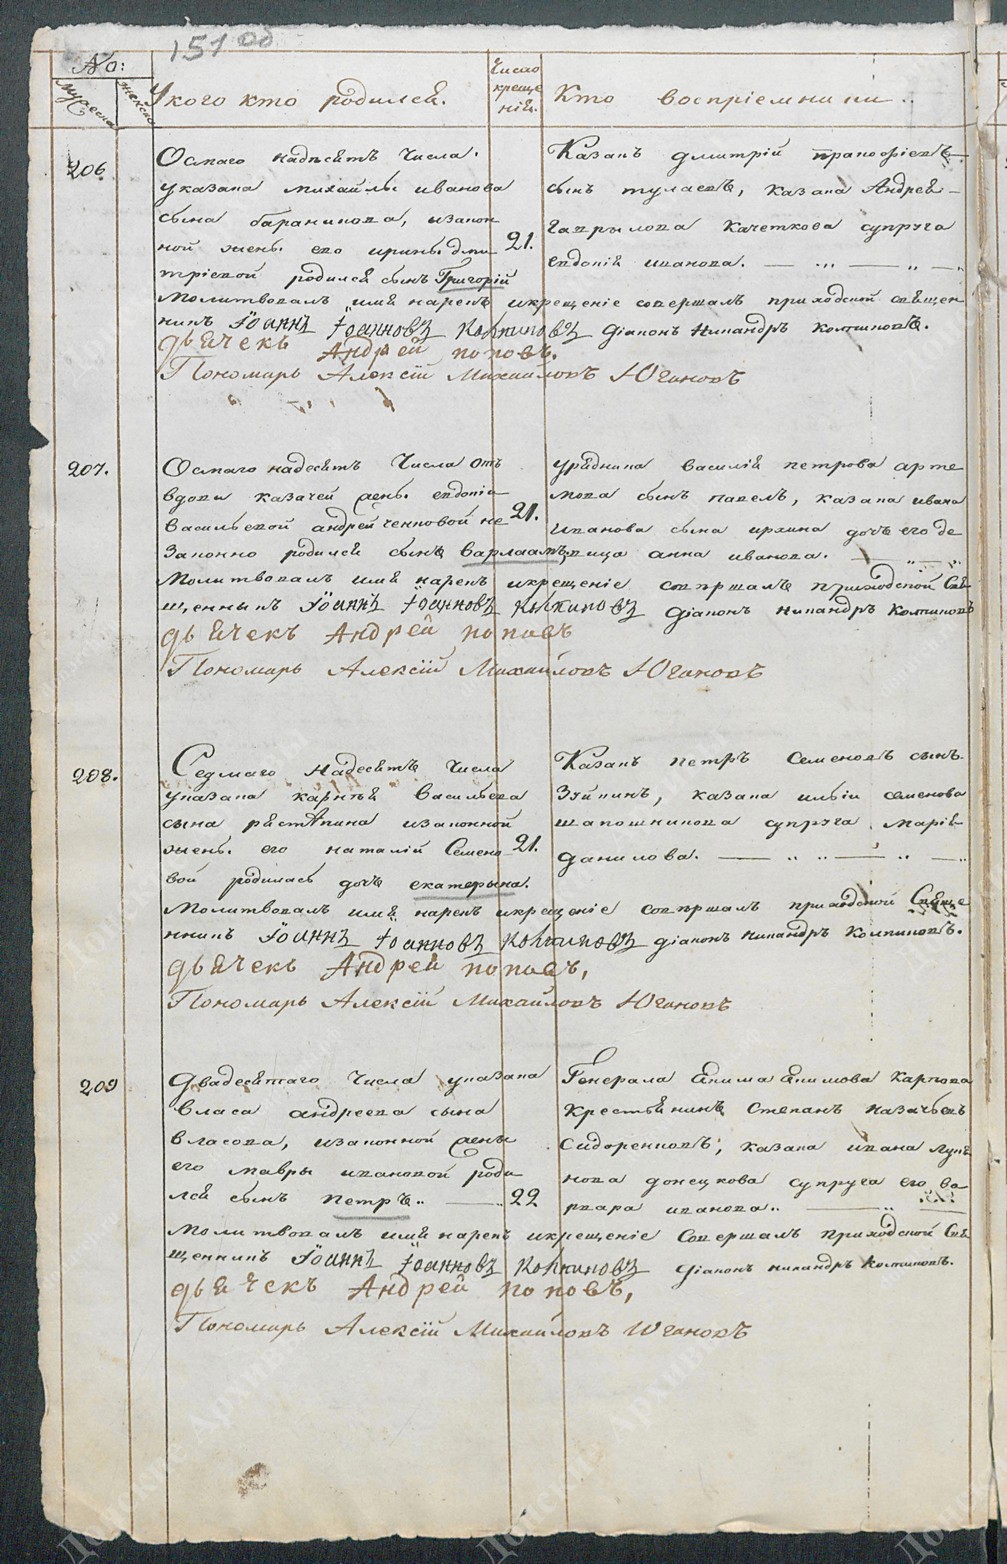 151 об
No:
мужеска
женско
У кого кто родился.
Число
креще
нія.
Кто воспріемники.
206.
Осмаго надесять Числа.
у казака михайлы иванова
сына баранникова, изакон
ной жены его ирины дми
тріевой родился сынъ Григорій
21.
Казакъ дмитрій
сынъ тулаевъ, казака Андрея
Гаврылова Качеткова супруга
евдокія иванова.
Молитвовалъ имя нарекъ икрещеніе совершалъ приходской священ
никъ Іоаннъ Іоанновъ Колпиковъ діаконъ Никандръ Колпиковъ.
дьячекъ Андрей поповъ.
Пономарь Алексій Михайловъ Югановъ
207.
Осмаго надесять Числа отъ
вдовы казачей жены евдокіи
Васильевой андрейченковой не
законно родился сынъ варлаамъ
21.
урядника василія петрова арте
мова сынъ павелъ, казака ивана
иванова сына ирхина дочь его де
вица анна иванова.
Молитвовалъ имя нарекъ икрещеніе совершалъ приходской Свя
щенникъ Іоаннъ Іоанновъ Колпиковъ діаконъ никандръ Колпиковъ
дьячекъ Андрей поповъ
Пономарь Алексій Михайловъ Югановъ
208.
Седмаго Надесять Числа
у казака карнѣя Васильева
сына растяпина изаконной
жены его наталіи Семено
вой родилась дочь екатерына.
21.
Казакъ петръ Семеновъ сынъ
Зуйкинъ, казака ильи семенова
шапошникова супруга марія
данилова.
Молитвовалъ имя нарекъ икрещеніе совершалъ приходской Свяще
нникъ Іоаннъ Іоанновъ Колпиковъ діаконъ никандръ Колпиковъ.
дьячекъ Андрей поповъ,
Пономарь Алексій Михайловъ Югановъ
209
Двадесятаго Числа у казака
Власа андреева сына
власова, изаконной жены
его мавры ивановой роди
лся сынъ петръ.
22
Генерала Екима Екимова Карпова
крестьянинъ Степанъ казачьевъ
Сидоренковъ, казака ивана
донецкова супруга его ва
рвара иванова.
Молитвовалъ имя нарекъ икрещеніе Совершалъ приходской Свя
щенникъ Іоаннъ Іоанновъ Колпиковъ діаконъ никандръ Колпиковъ.
дьячекъ Андрей поповъ,
Пономарь Алексій Михайловъ Югановъ